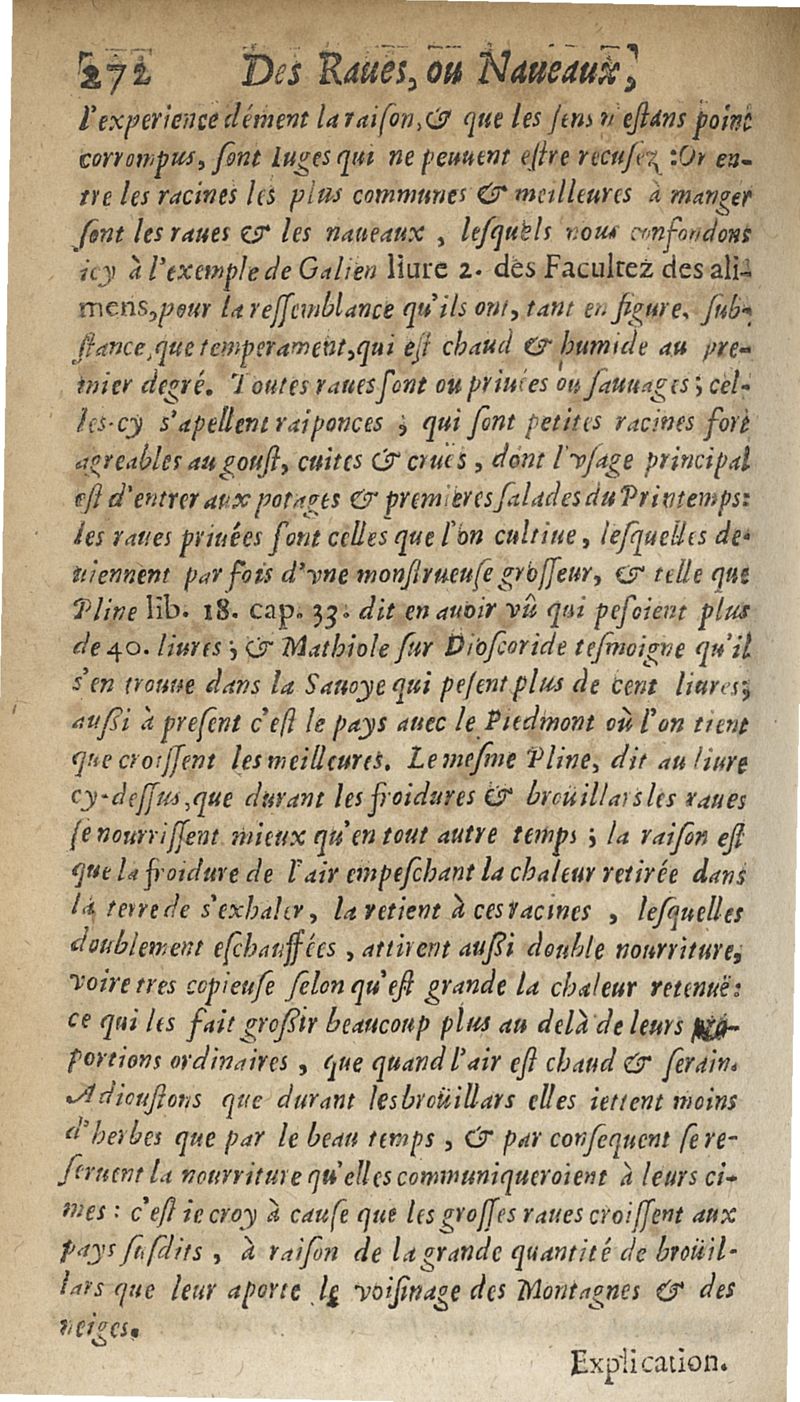 272 Des Raues, ou Naueaux,
l'experience dément la raison, & que les sens n'estans point
corrompus, sont Iuges qui ne peuuent estre recusez : Or en-
tre les racines les plus communes & meilleures à manger
sont les raues & les naueaux, lesquels nous confondons
icy à l'exemple de Galien liure 2. des Facultez des ali-
mens, pour la ressemblance qu'ils ont, tant en figure, sub-
stance, que temperament, qui est chaud & humide au pre-
mier degré. Toutes raues sont ou priuées ou sauuages; cel-
les-cy s'apellent raiponces; qui sont petites racines fort
agreables au goust, cuites & crues, dont l'vsage principal
est d'entrer aux potages & premieres salades du Printemps:
les raues priuées sont celles que l'on cultiue, lesquelles de-
uiennent par fois d'vne monstrueuse grosseur, & telle que
Pline lib. 18. cap. 33. dit en auoir vû qui pesoient plus
de 40. liures; & Mathiole sur Dioscoride tesmoigne qu'il
s'en trouue dans la Sauoye qui pesent plus de cent liures;
aussi à present c'est le pays auec le Piedmont où l'on tient
que croissent les meilleures. Le mesme Pline, dit au liure
cy-dessus, que durant les froidures & broüillars les raues
se nourrissent mieux qu'en tout autre temps; la raison est
que la froidure de l'air empeschant la chaleur retirée dans
la terre de s'exhaler, la retient à ces racines, lesquelles
doublement eschauffées, attirent aussi double nourriture,
voire tres copieuse selon qu'est grande la chaleur retenuë:
ce qui les fait grossir beaucoup plus au delà de leurs pro-
portions ordinaires, que quand l'air est chaud & serain.
Adioustons que durant les broüillars elles iettent moins
d'herbes que par le beau temps, & par consequent se re-
seruent la nourriture qu'elles communiqueroient à leurs ci-
mes: c'est ie croy à cause que les grosses raues croissent aux
pays susdits, à raison de la grande quantité de broüil-
lars que leur aporte le voisinage des Montagnes & des
neiges.
Explication.